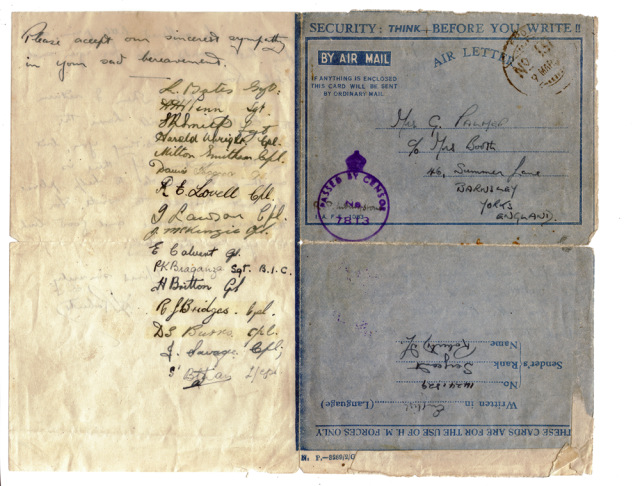 Please accept our sincerest sympathy
in your sad bereavement.
L. Bates Sgt.
Sgt.
Harold Wright, Cpl.
Milton Smithem Cpl.
R E Lovell Cpl.
J Lawson Cpl.
J. McKinzie Cpl.
E Calvert
P.K Braganza Sgt. B.I.C.
H Britton
R J Bridges. Cpl.
D S Burke Cpl.
J. Savage Cpl,
L/Cpl
SECURITY: THINK - BEFORE YOU WRITE !!
BY AIR MAIL
AIR LETTER
IF ANYTHING IS ENCLOSED
THIS CARD WILL BE SENT
BY ORDINARY MAIL
Mrs G. Palmer
c/o Mrs Booth
46, Summer Lane
BARNSLEY
YORKS
ENGLAND.
PASSED BY CENSOR
No
7813
THESE CARDS ARE FOR THE USE OF H.M. FORCES ONLY
Written in English (Language)
No.
Sender's Rank Sergeant
Name Roberts